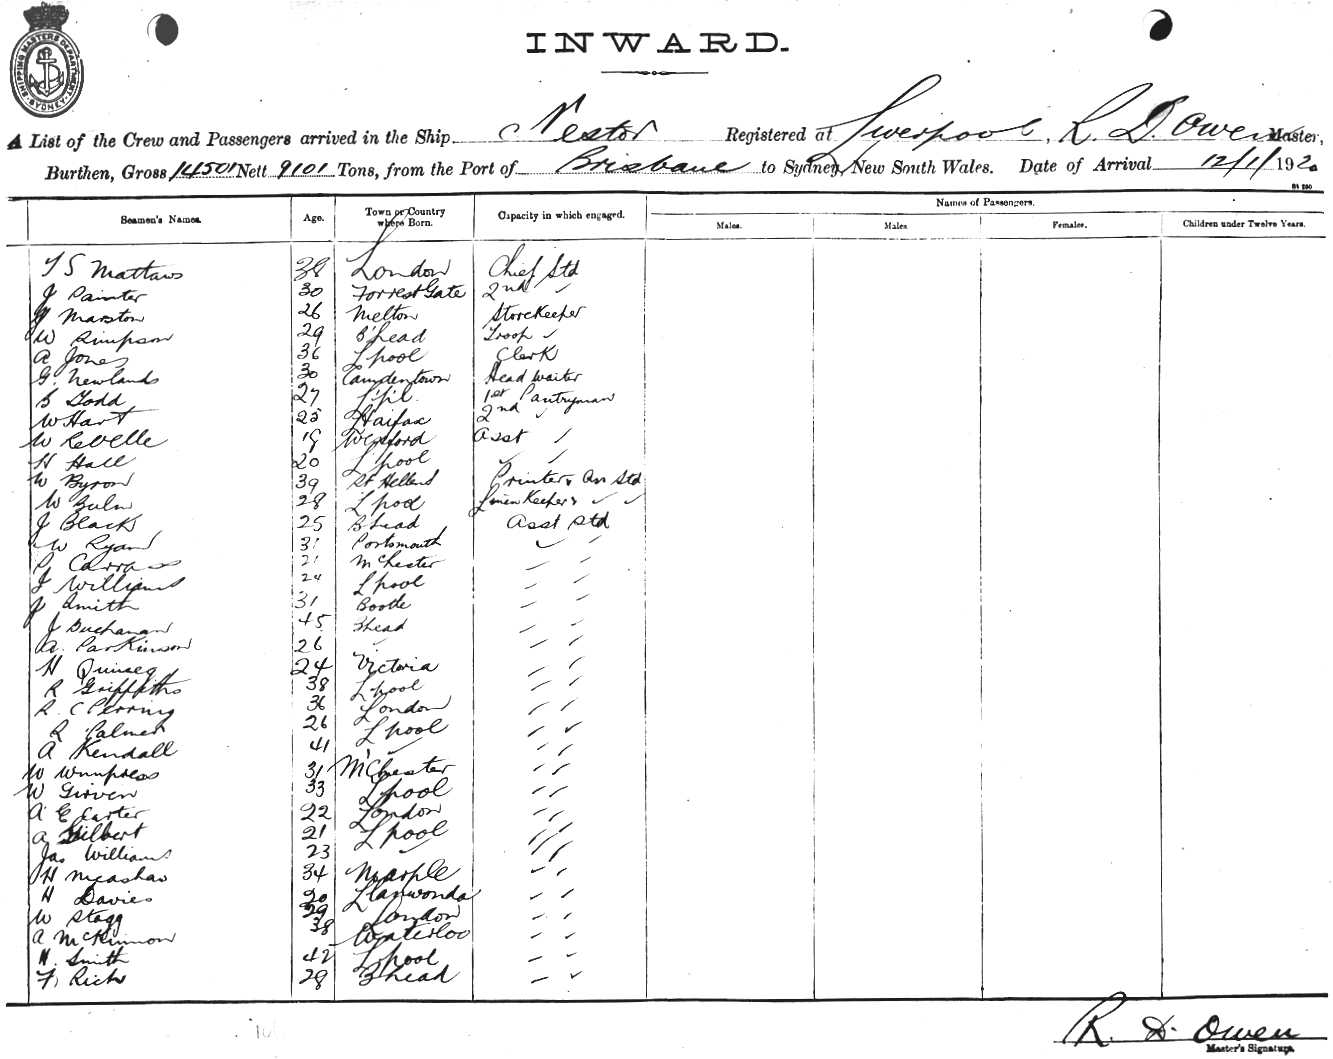 SHIPPING MASTERS DEPARTMENT SYDNEY
INWARD.
A List of the Crew and Passengers arrived in the Ship Nestor Registered at Liverpool, R. D. Owen Master,
Burthen, Gross 14501 Nett 9101 Tons, from the Port of Brisbane to Sydney, New South Wales. Date of Arrival 12/1/1920
Names of Passengers.
Seamen's Names. Age. Town or Country where Born. Capacity in which engaged. Males. Males Females. Children under Twelve Years.
T S Mattaws 38 London Chief Std
J Painter 30 Forrest Gate 2nd ✓
Marston 26 Melton StoreKeeper
W Simpson 29 B'head Troop ✓
A Jones 36 L'pool Clerk
G. Newlands 30 Camdentown Head Waiter
Todd 27 L'p'l 1st Pantryman
W Hart 25 Halifax 2nd ✓
W Revelle 19 Wexford Asst ✓
H Hall 20 L'pool ✓ ✓
W Byron 39 St Hellend Printer & Ass Std
W Buln 28 L'pool Linen Keeper & ✓ ✓
J Black 25 B'head Asst Std
W Ryan 31 Portsmouth ✓ ✓
21 McChester ✓ ✓
J Williams 24 L'pool ✓ ✓
J Smith 31 Bootle ✓ ✓
J Buchanan 45 B'head ✓ ✓
A. Parkinson 26 ✓ ✓ ✓
H Quincey 24 Victoria ✓ ✓
R Griffiths 38 L'pool ✓ ✓
R. C Perring 36 London ✓ ✓
R Palmer 26 L'pool ✓ ✓
A Kendall 41 ✓ ✓ ✓
W Wnnpress 31 M'Chester ✓ ✓
W Girven 33 L'pool ✓ ✓
A E Carter 22 London ✓ ✓
A Gilbert 21 L'pool ✓ ✓
Jas Williams 23 ✓ ✓ ✓
H 34 Marple ✓ ✓
H Davies 20 Llanwonda ✓ ✓
W Stagg 29 London ✓ ✓
A McKinnon 38 Waterloo ✓ ✓
H. Smith 42 L'pool ✓ ✓
F. Rich 28 B'head ✓ ✓
R. D. Owen
Master's Signature.